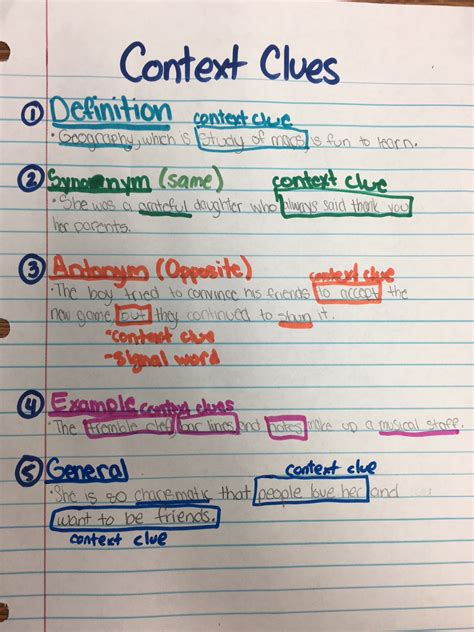 Context Clues
① Definition context clue
• Geography, which is study of maps is fun to learn.
② Synonym (same) context clue
• She was a grateful daughter who always said thank you
her parents.
③ Antonym (Opposite) context clue
• The boy tried to convince his friends to accept the
new game but they continued to shun it.
-context clue
-signal word
④ Example context clues
• The tremble clef, bar lines and notes make up a musical staff.
⑤ General context clue
• She is so charasmatic that people love her and
want to be friends.
context clue